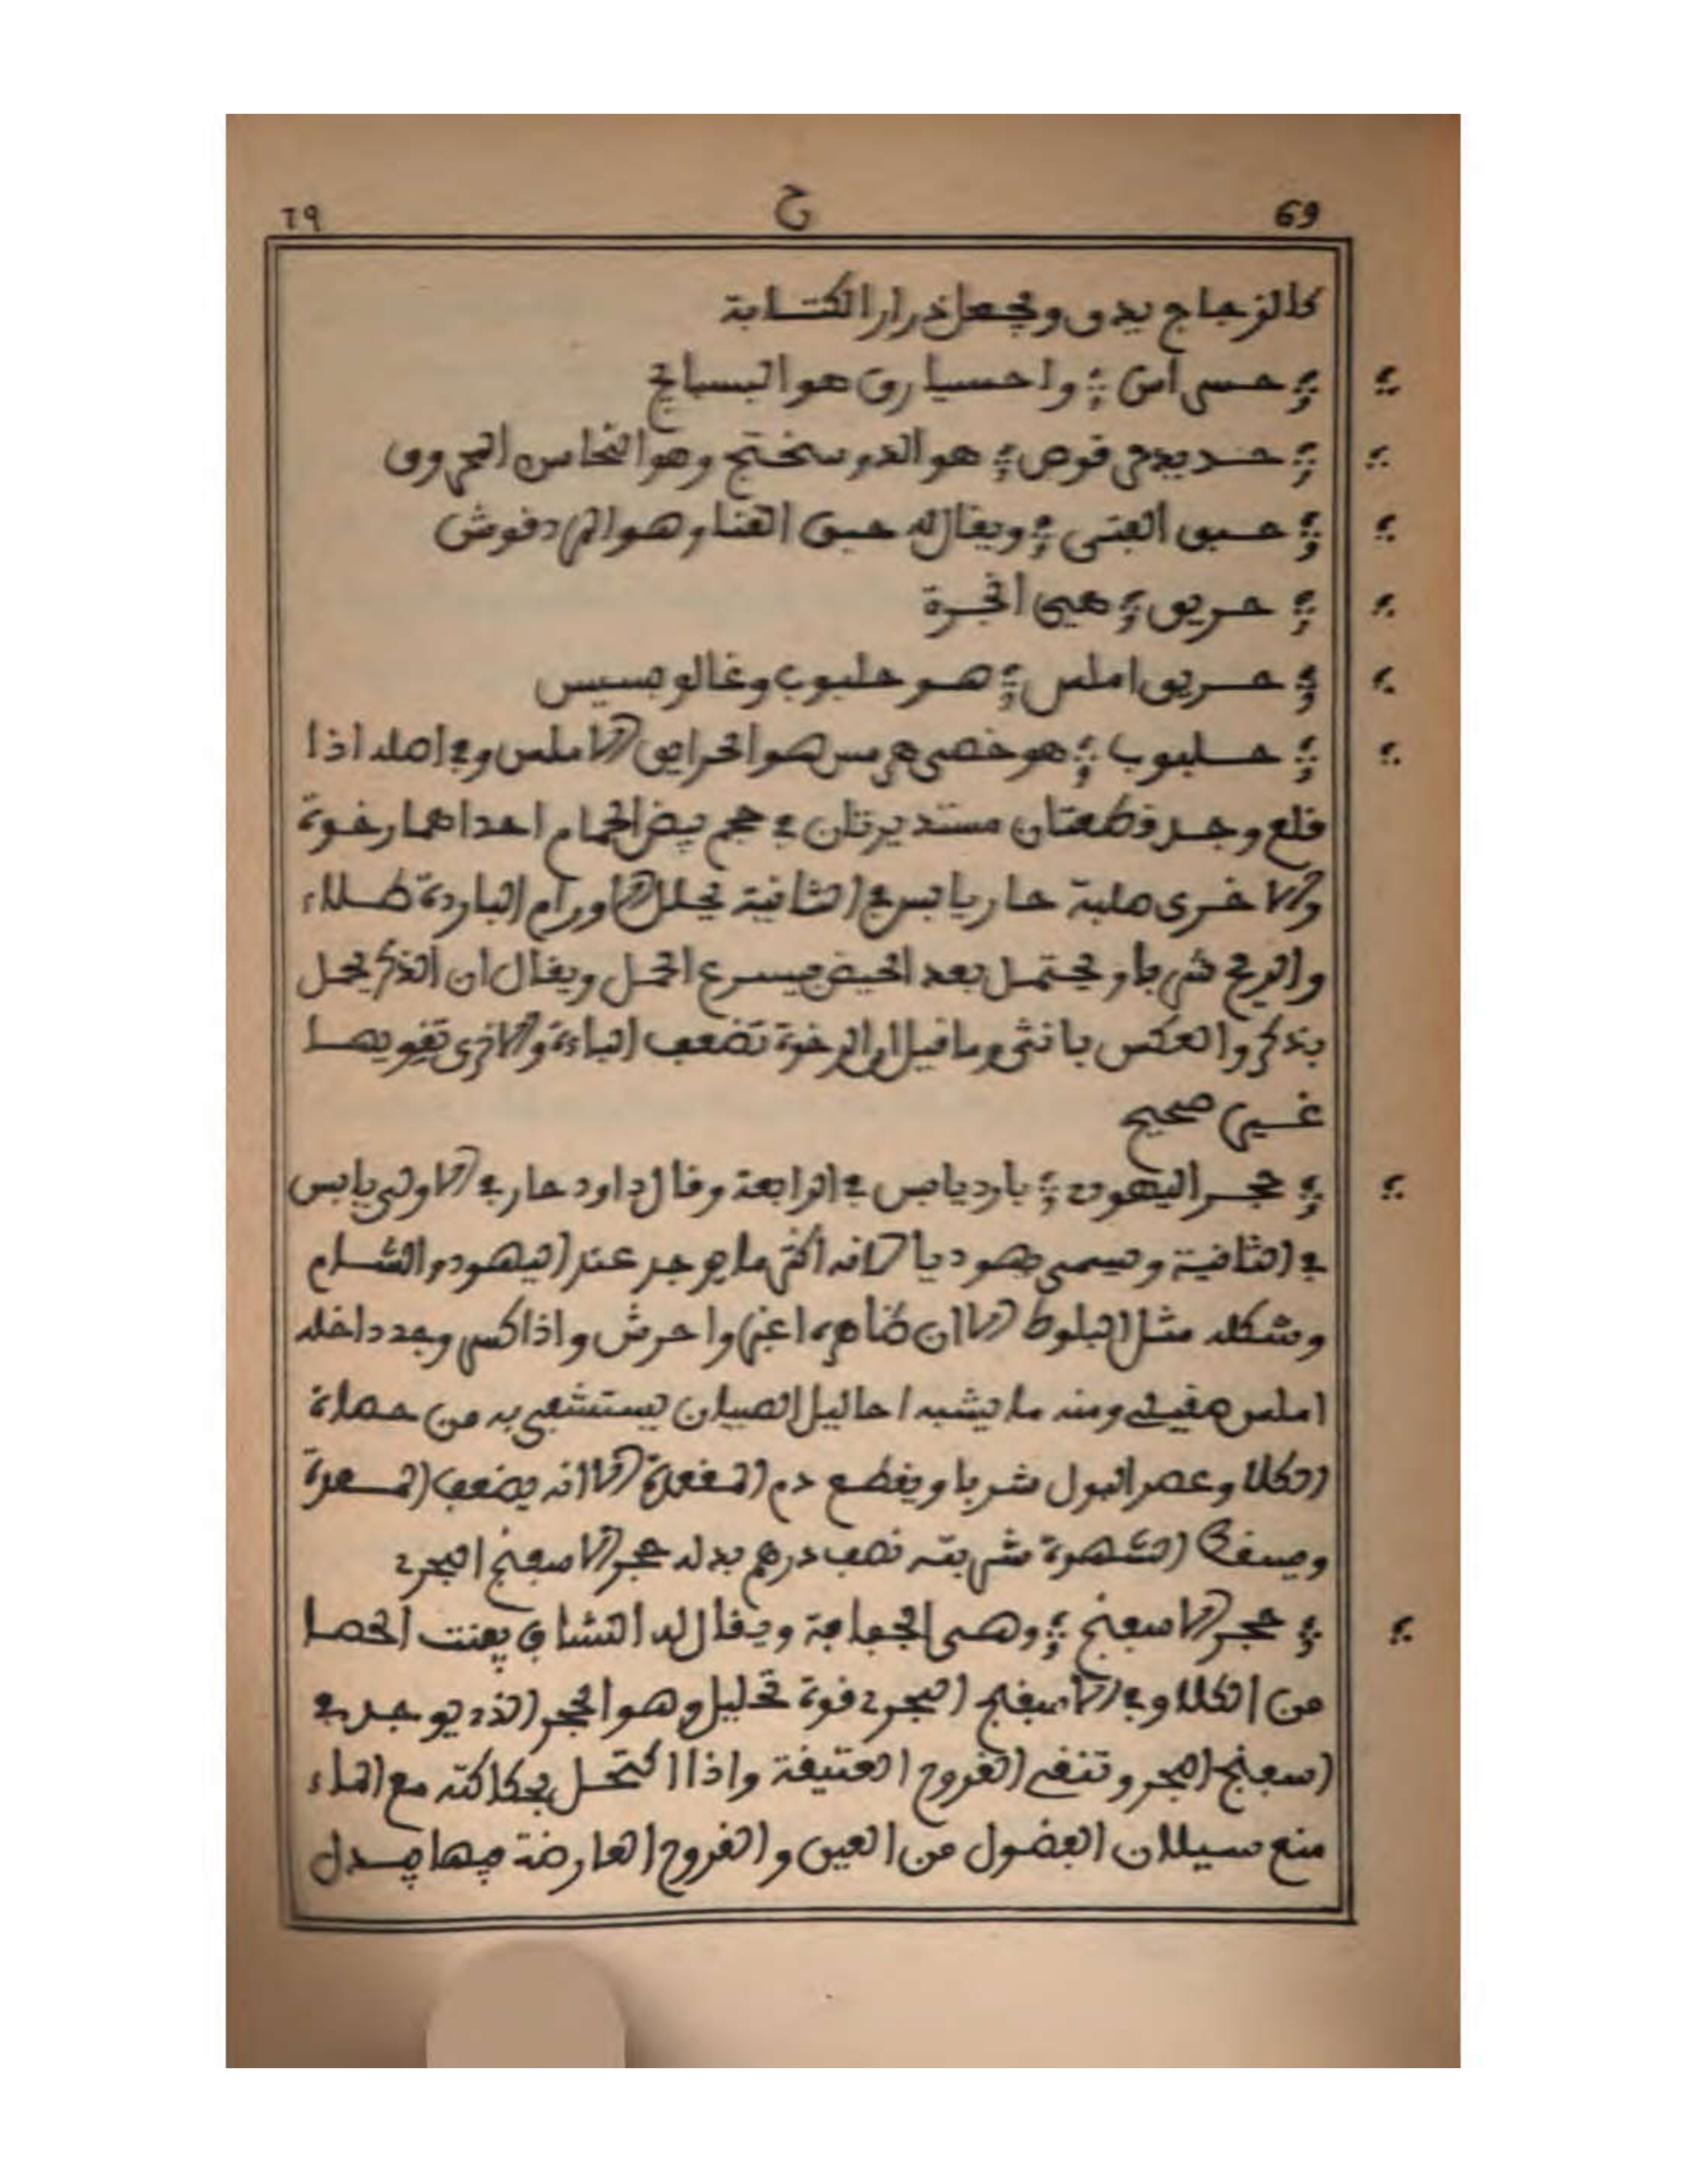 69 ح ٦٩
كالزجاج يدق ويجعل ذرارا لكتابة
حسى اس واحسيارق هو البسبايج
حديد محرق هو الروسختج وهو النحاس المحروق
حبق الفتى ويقال له حبق القنا وهو المردقوش
حريق هي انجرة
حريق املس هو حلبوب وغالوبسيس
حلبوب هو خصى هرمس هو الحرايق الاملس وفي اصله اذا
قلع وجد قطعتان مستديرتان في حجم بيض الحمام احداهما رخوة
والاخرى صلبة حار يابس في الثانية يحلل الاورام الباردة طلاء
والريح شربا ويحتمل بعد الحيض فيسرع الحمل ويقال ان الذكر يحمل
بذكر والعكس بانثى وما قيل ان الرخوة تضعف الباءة والاخرى تقويها
غير صحيح
حجر اليهود بارد يابس في الرابعة وقال داود حار في الاولى يابس
في الثانية ويسمى يهوديا لانه اكثر ما يوجد عند اليهود والشام
وشكله مثل البلوط الا ان ظاهره اغبر واحرش واذا كسر وجد داخله
املس صقيل ومنه ما يشبه احاليل الصبيان يستشفى به من حصاة
الكلا وعصر البول شربا ويقطع دم المقعدة الا انه يضعف المعدة
ويسقط الشهوة شربته نصف درهم بدله حجر الاسفنج البحري
حجر الاسفنج وهي الجفافة ويقال له النشاف يفتت الحصا
من الكلا وفي الاسفنج البحري قوة تحليل وهو الحجر الذي يوجد في
اسفنج البحر وتنقي القروح العتيقة واذا اكتحل بحكاكته مع الماء
منع سيلان الفضول من العين والقروح العارضة فيها فيدل